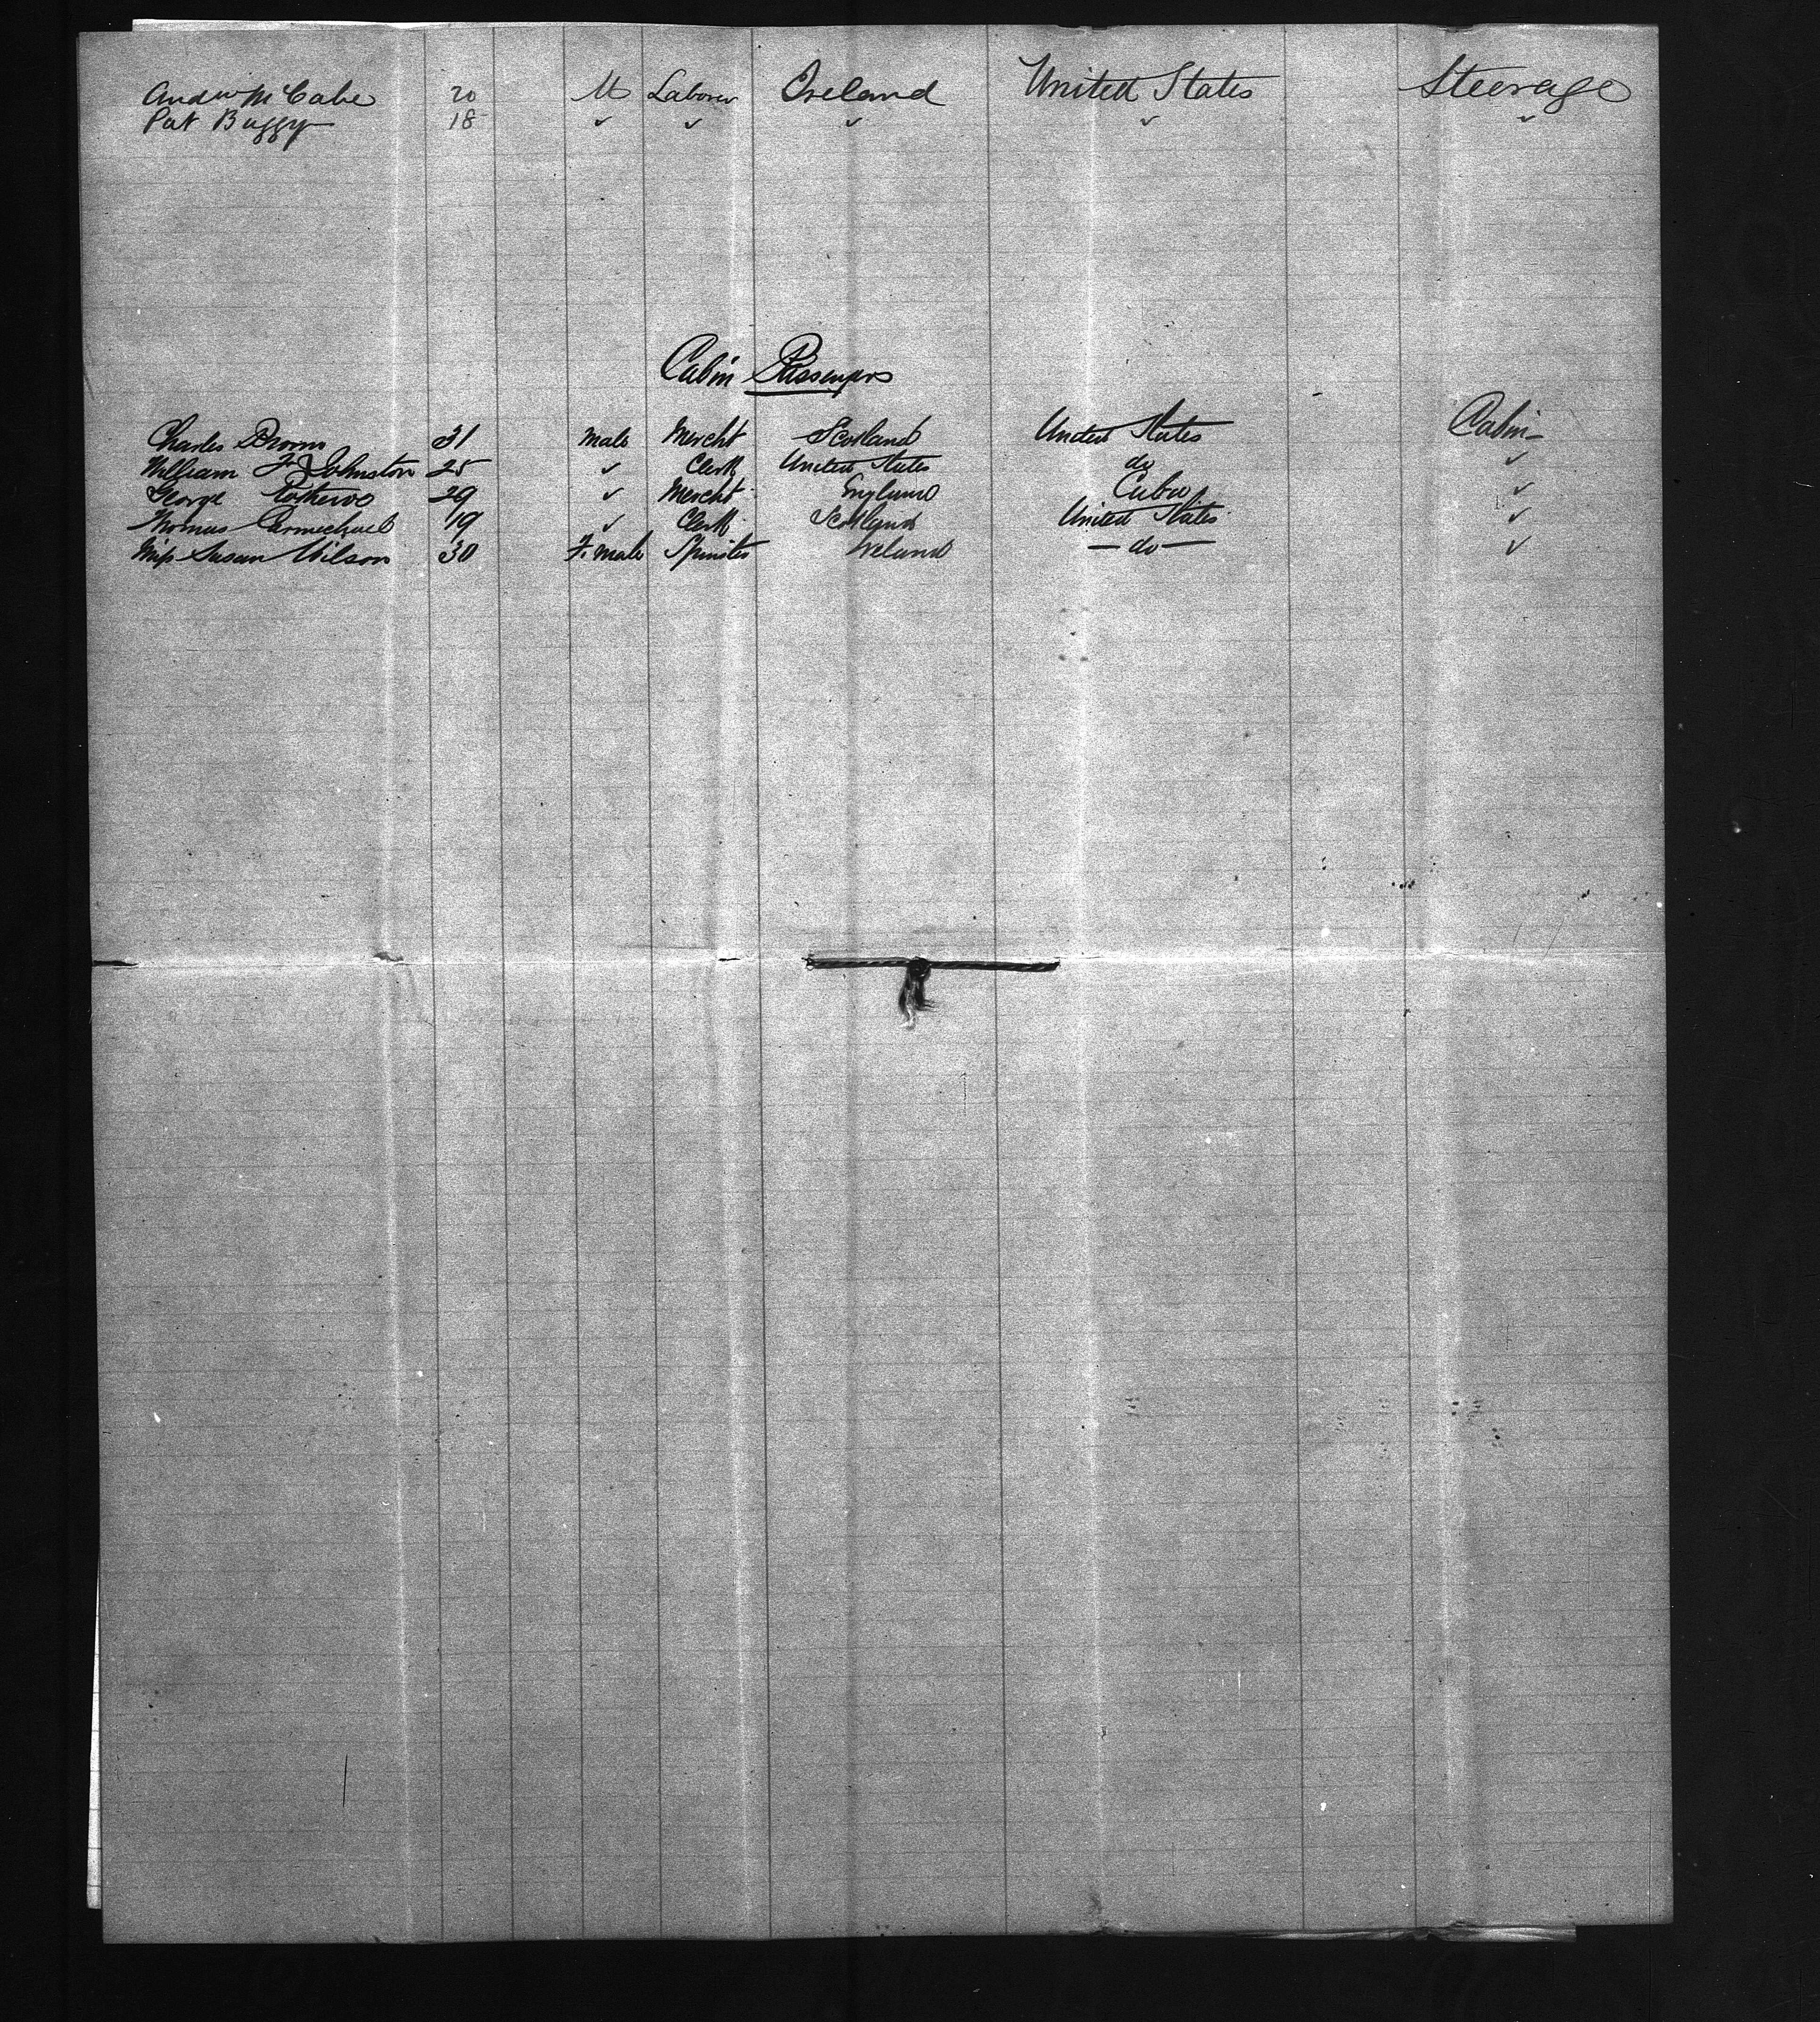 Andrew McCabe 20 M Laborer Ireland United States Steerage
Pat Buggy 18 ✓ ✓ ✓ ✓ ✓
Cabin Passengers
Charles Broom 31 Male Mercht Scotland United States Cabin
William F. Johnston 25 ✓ Clerk United States do ✓
George 29 ✓ Mercht England Cuba ✓
Thomas Carmichael 19 ✓ Clerk Scotland United States ✓
Miss Susan Wilson 30 F. male Spinster Ireland — do — ✓